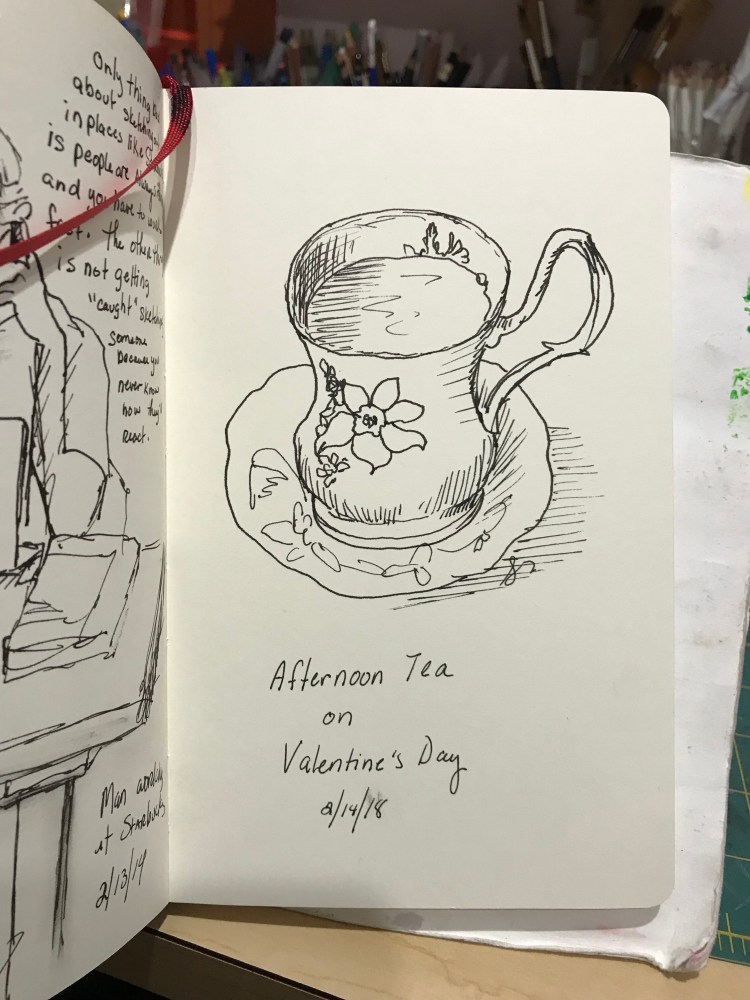 Only thing
about sketching
in places like
is people are always
and you have to work
fast. The other
is not getting
"caught" sketching
someone
because you
never know
how they'll
react.
Man working
at Starbucks
2/13/14
Afternoon Tea
on
Valentine's Day
2/14/18